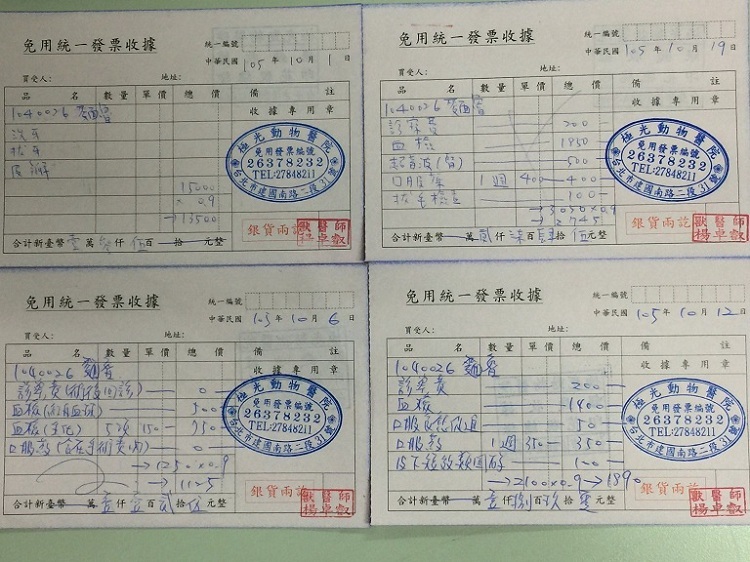 免用統一發票收據
統一編號
中華民國 105 年 10 月 1 日
買受人： 地址：
品名 數量 單價 總價 備註
1040026
收據專用章
洗牙
拔牙
極光動物醫院
免用發票編號
26378232
TEL:27848211
台北市建國南路二段31號
15000
×0.9
→13500
銀貨兩訖
獸醫師
楊卓叡
合計新臺幣 壹萬 仟 伍百 拾 元整
免用統一發票收據
統一編號
中華民國 105 年 10 月 19 日
買受人： 地址：
品名 數量 單價 總價 備註
1040026
收據專用章
診察費 200
血檢 1850
超音波 500
口服藥 1週 400 400
100
極光動物醫院
免用發票編號
26378232
TEL:27848211
台北市建國南路二段31號
→3050×0.9
→2745
銀貨兩訖
獸醫師
楊卓叡
合計新臺幣 萬 貳仟 柒百 肆拾 伍元整
免用統一發票收據
統一編號
中華民國 105 年 10 月 6 日
買受人： 地址：
品名 數量 單價 總價 備註
1040026
收據專用章
診察費(術後回診) 0
血檢 500
血檢(生化) 5項 150 750
口服藥(含在手術費內) 0
極光動物醫院
免用發票編號
26378232
TEL:27848211
台北市建國南路二段31號
→1250×0.9
→1125
銀貨兩訖
獸醫師
楊卓叡
合計新臺幣 萬 壹仟 壹百 貳拾 伍元整
免用統一發票收據
統一編號
中華民國 105 年 10 月 12 日
買受人： 地址：
品名 數量 單價 總價 備註
1040026
收據專用章
診察費 200
血檢 1400
50
口服藥 1週 350 350
100
極光動物醫院
免用發票編號
26378232
TEL:27848211
台北市建國南路二段31號
→2100×0.9→1890
銀貨兩訖
獸醫師
楊卓叡
合計新臺幣 萬 壹仟 捌百 玖拾 零元整